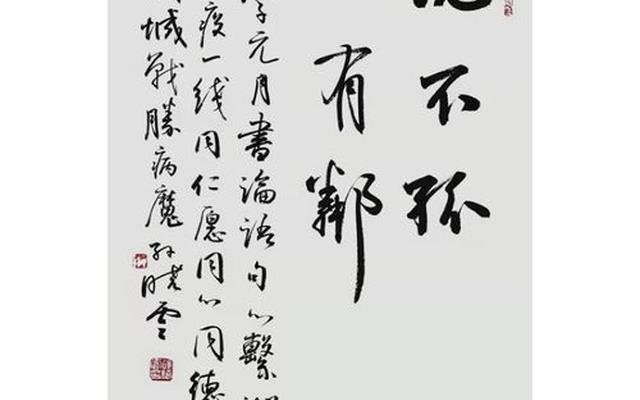 不孤
有鄰
子元月書論語句心繫
疫一线同仁愿同心同德
城戰勝病魔孙曉雲